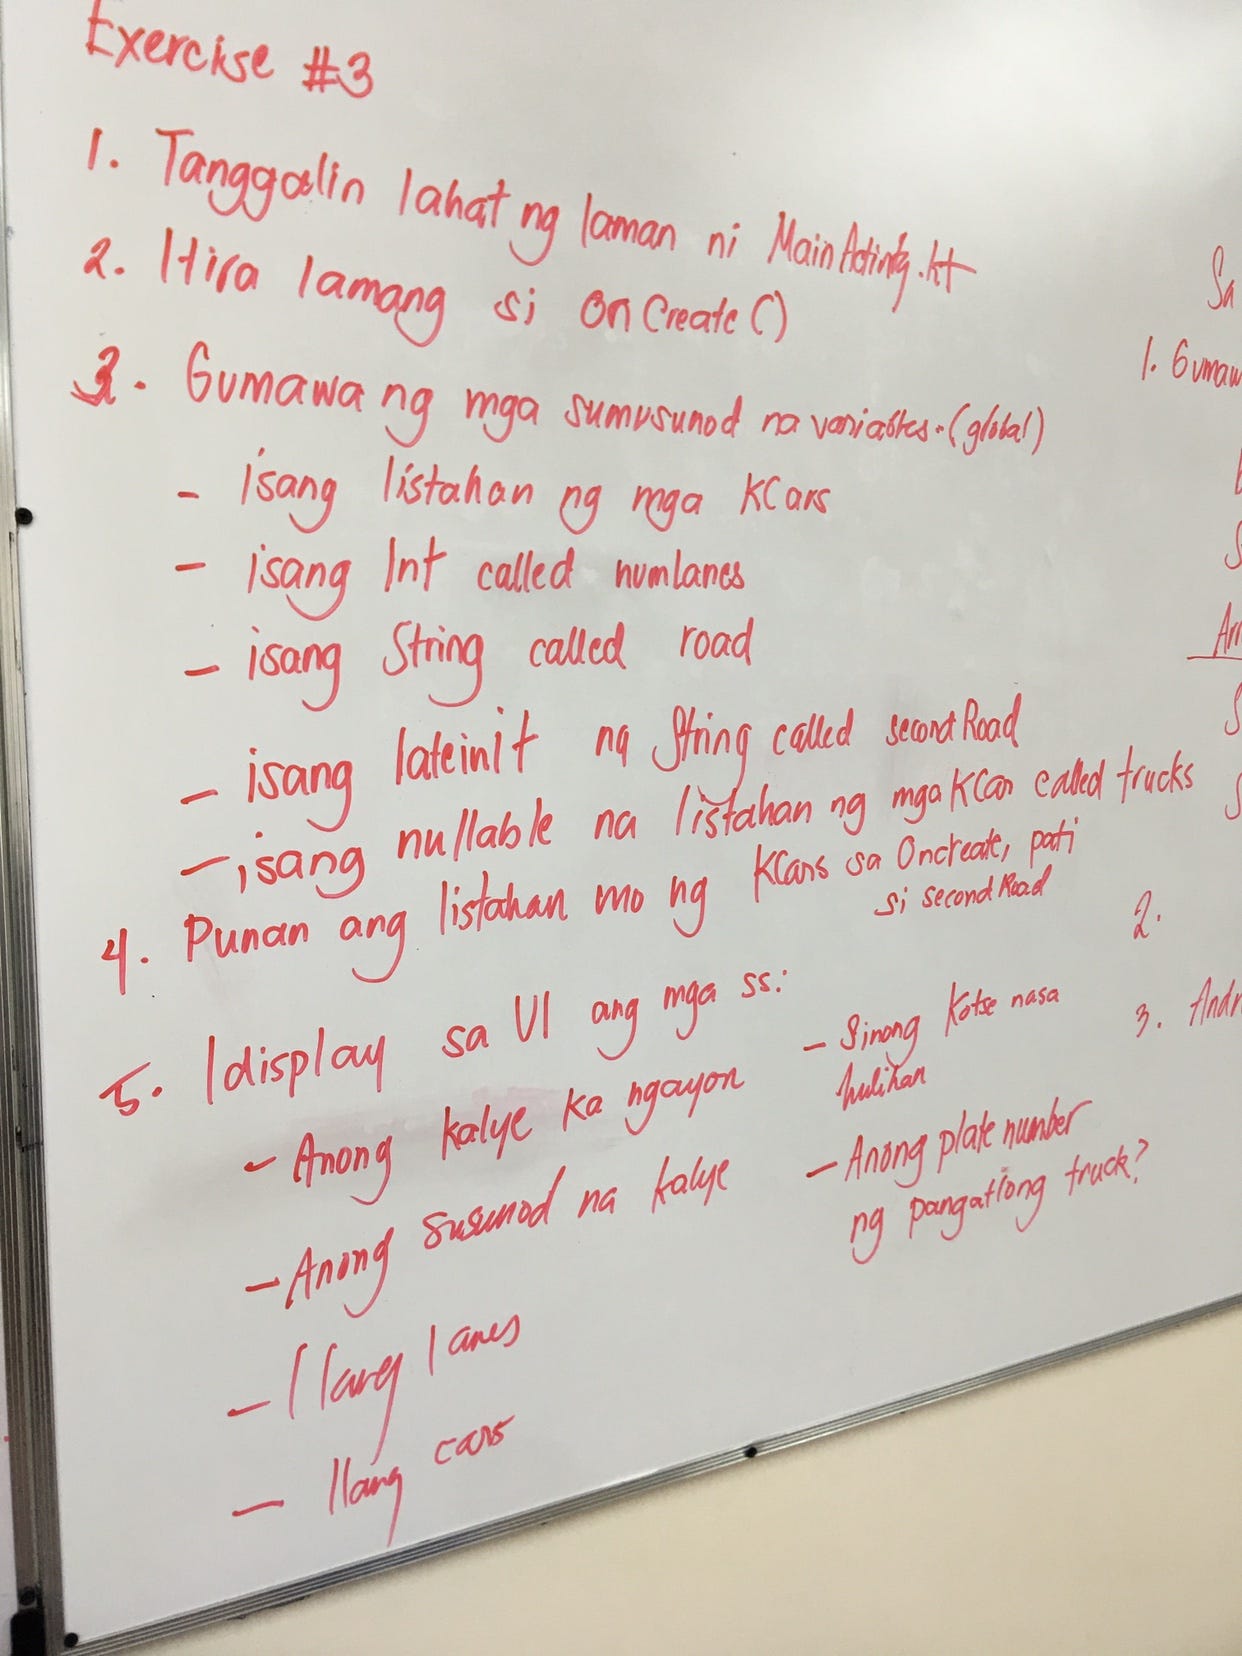 Exercise #3
1. Tanggalin lahat ng laman ni MainActivity.kt
2. Itira lamang si OnCreate()
3. Gumawa ng mga sumusunod na variables. (global)
- isang listahan ng mga KCars
- isang Int called numlanes
- isang String called road
- isang lateinit na String called secondRoad
- isang nullable na listahan ng mga KCar called trucks
4. Punan ang listahan mo ng KCars sa Oncreate, pati
si secondRoad
5. Idisplay sa UI ang mga ss:
- Anong kalye ka ngayon
- Anong susunod na kalye
- Ilang lanes
- Ilang cars
- Sinong kotse nasa
hulihan
- Anong plate number
ng pangatlong truck?
Sa
1. Gumaw
2.
3. Andr